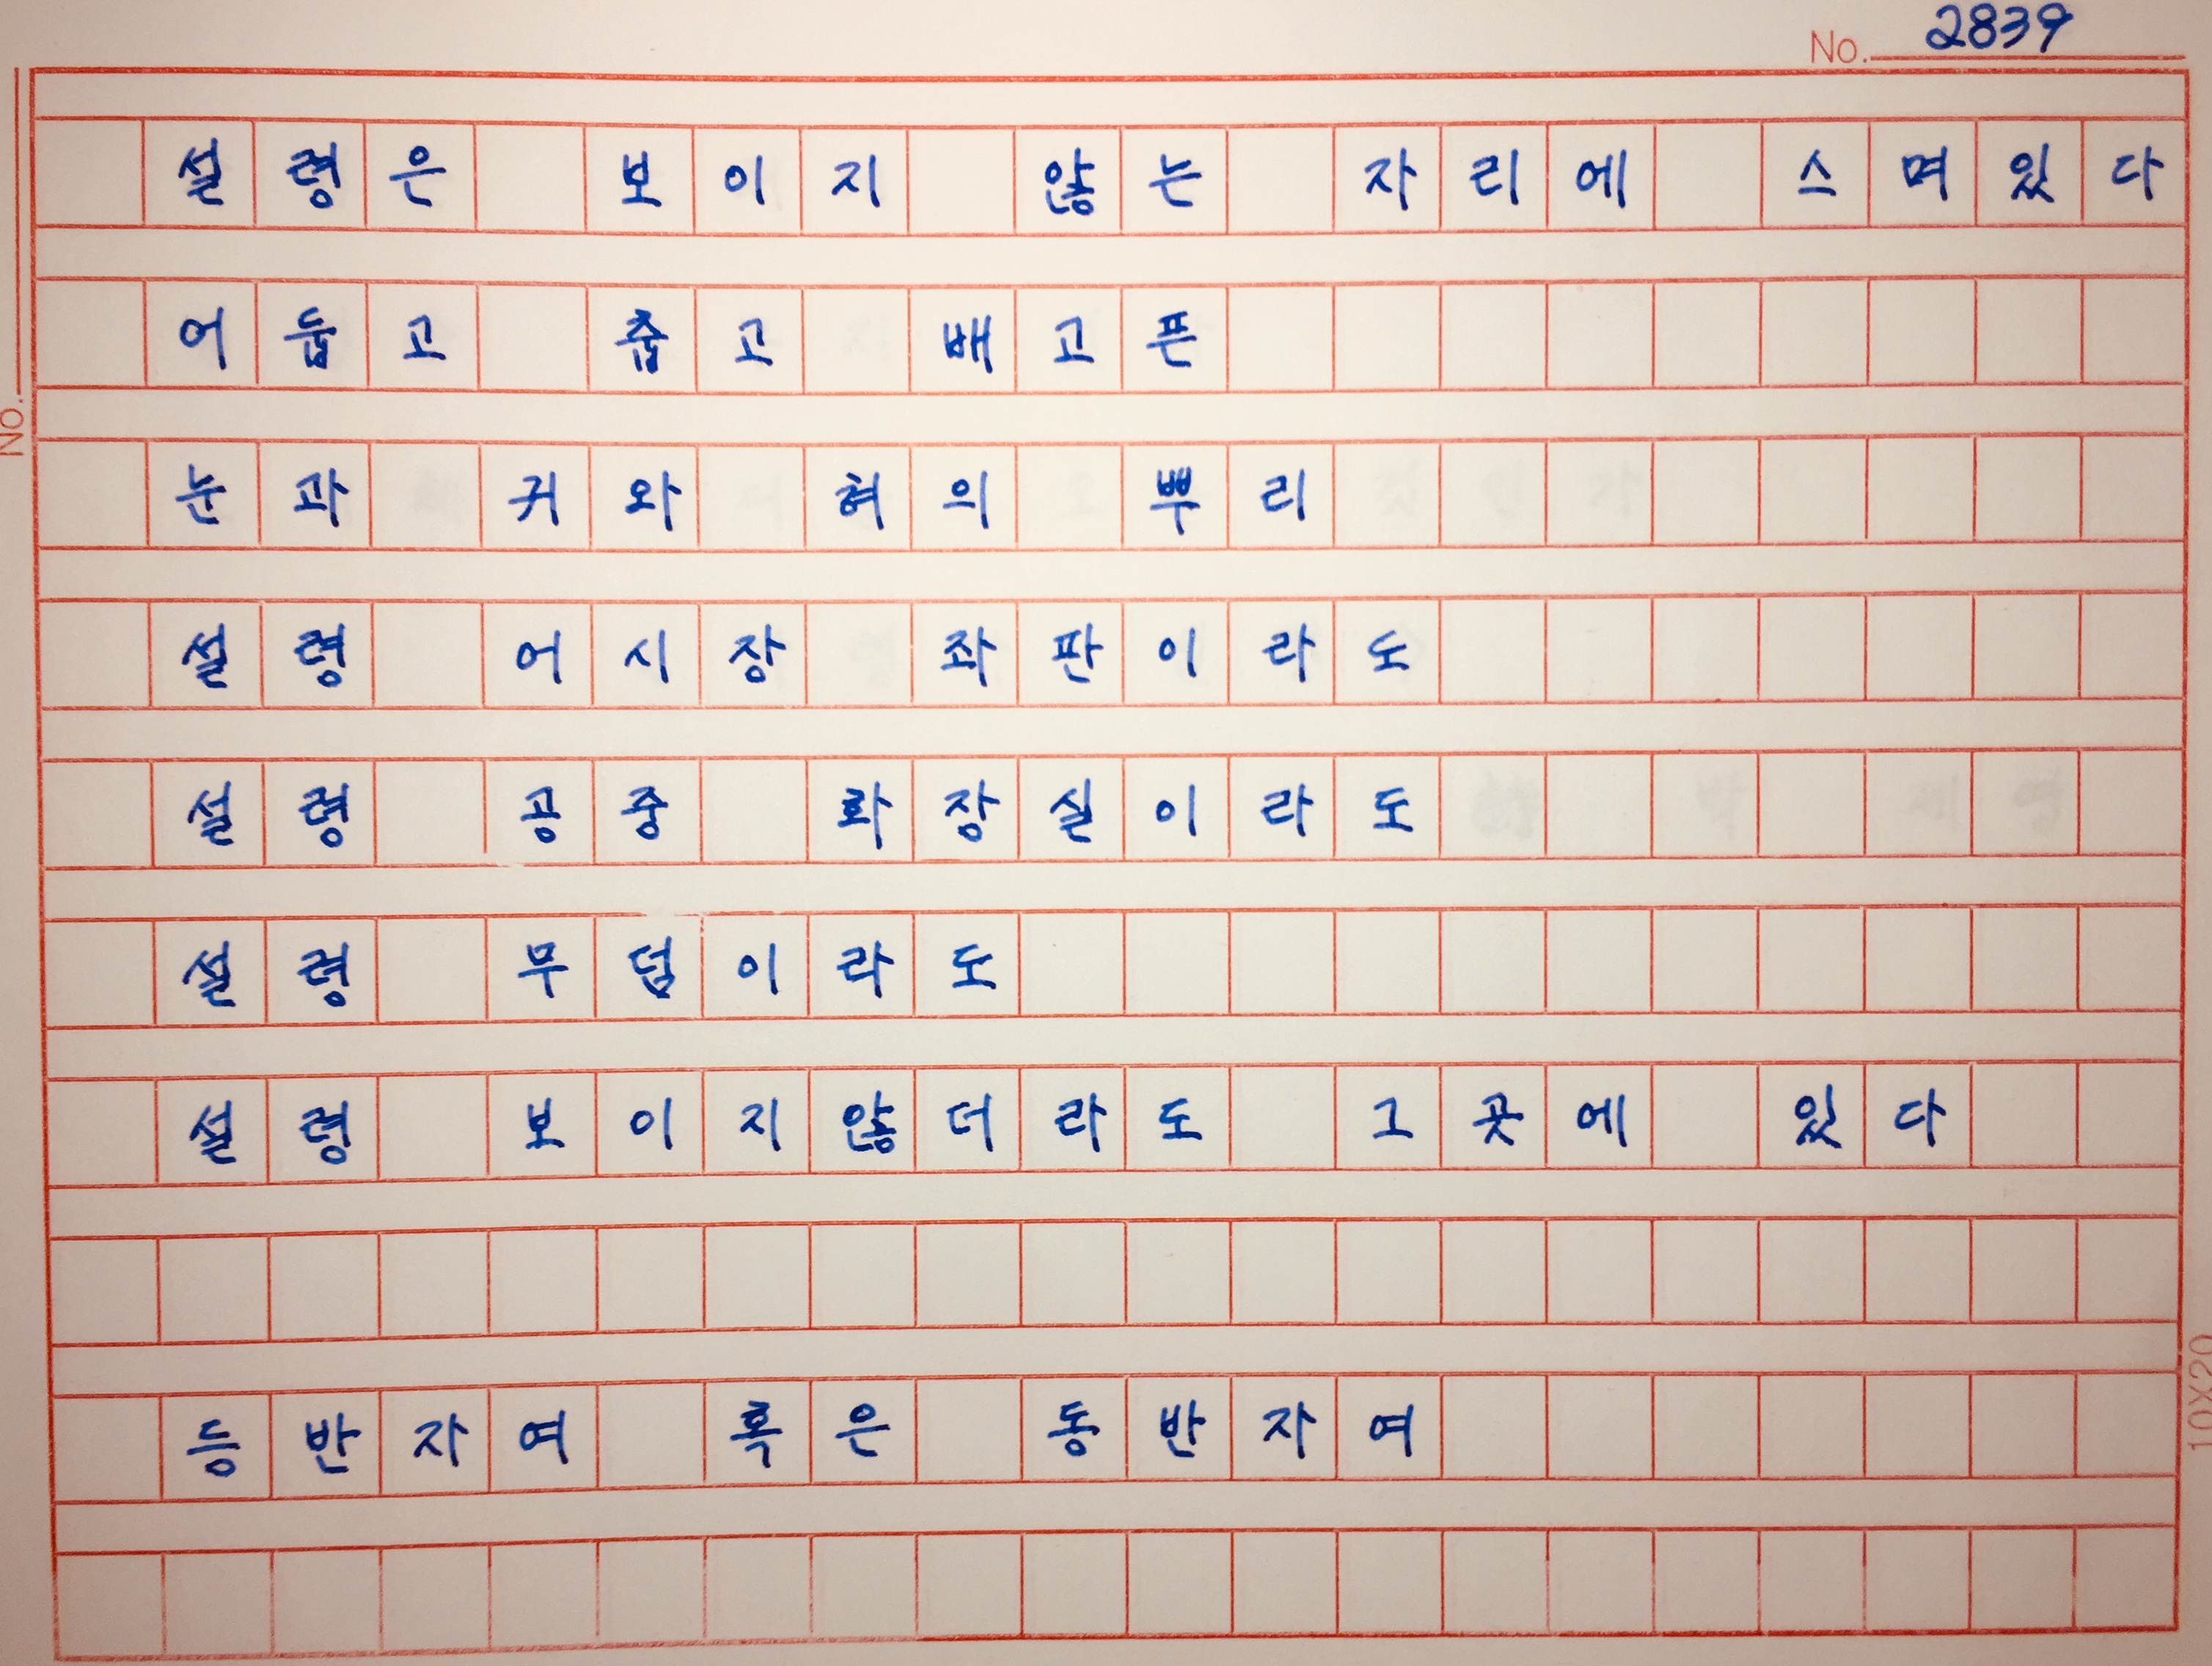 No. 2839
설령은 보이지 않는 자리에 스며있다
어둡고 춥고 배고픈
눈과 귀와 혀의 뿌리
설령 어시장 좌판이라도
설령 공중 화장실이라도
설령 무덤이라도
설령 보이지않더라도 그곳에 있다
등반자여 혹은 동반자여
No.
10X20